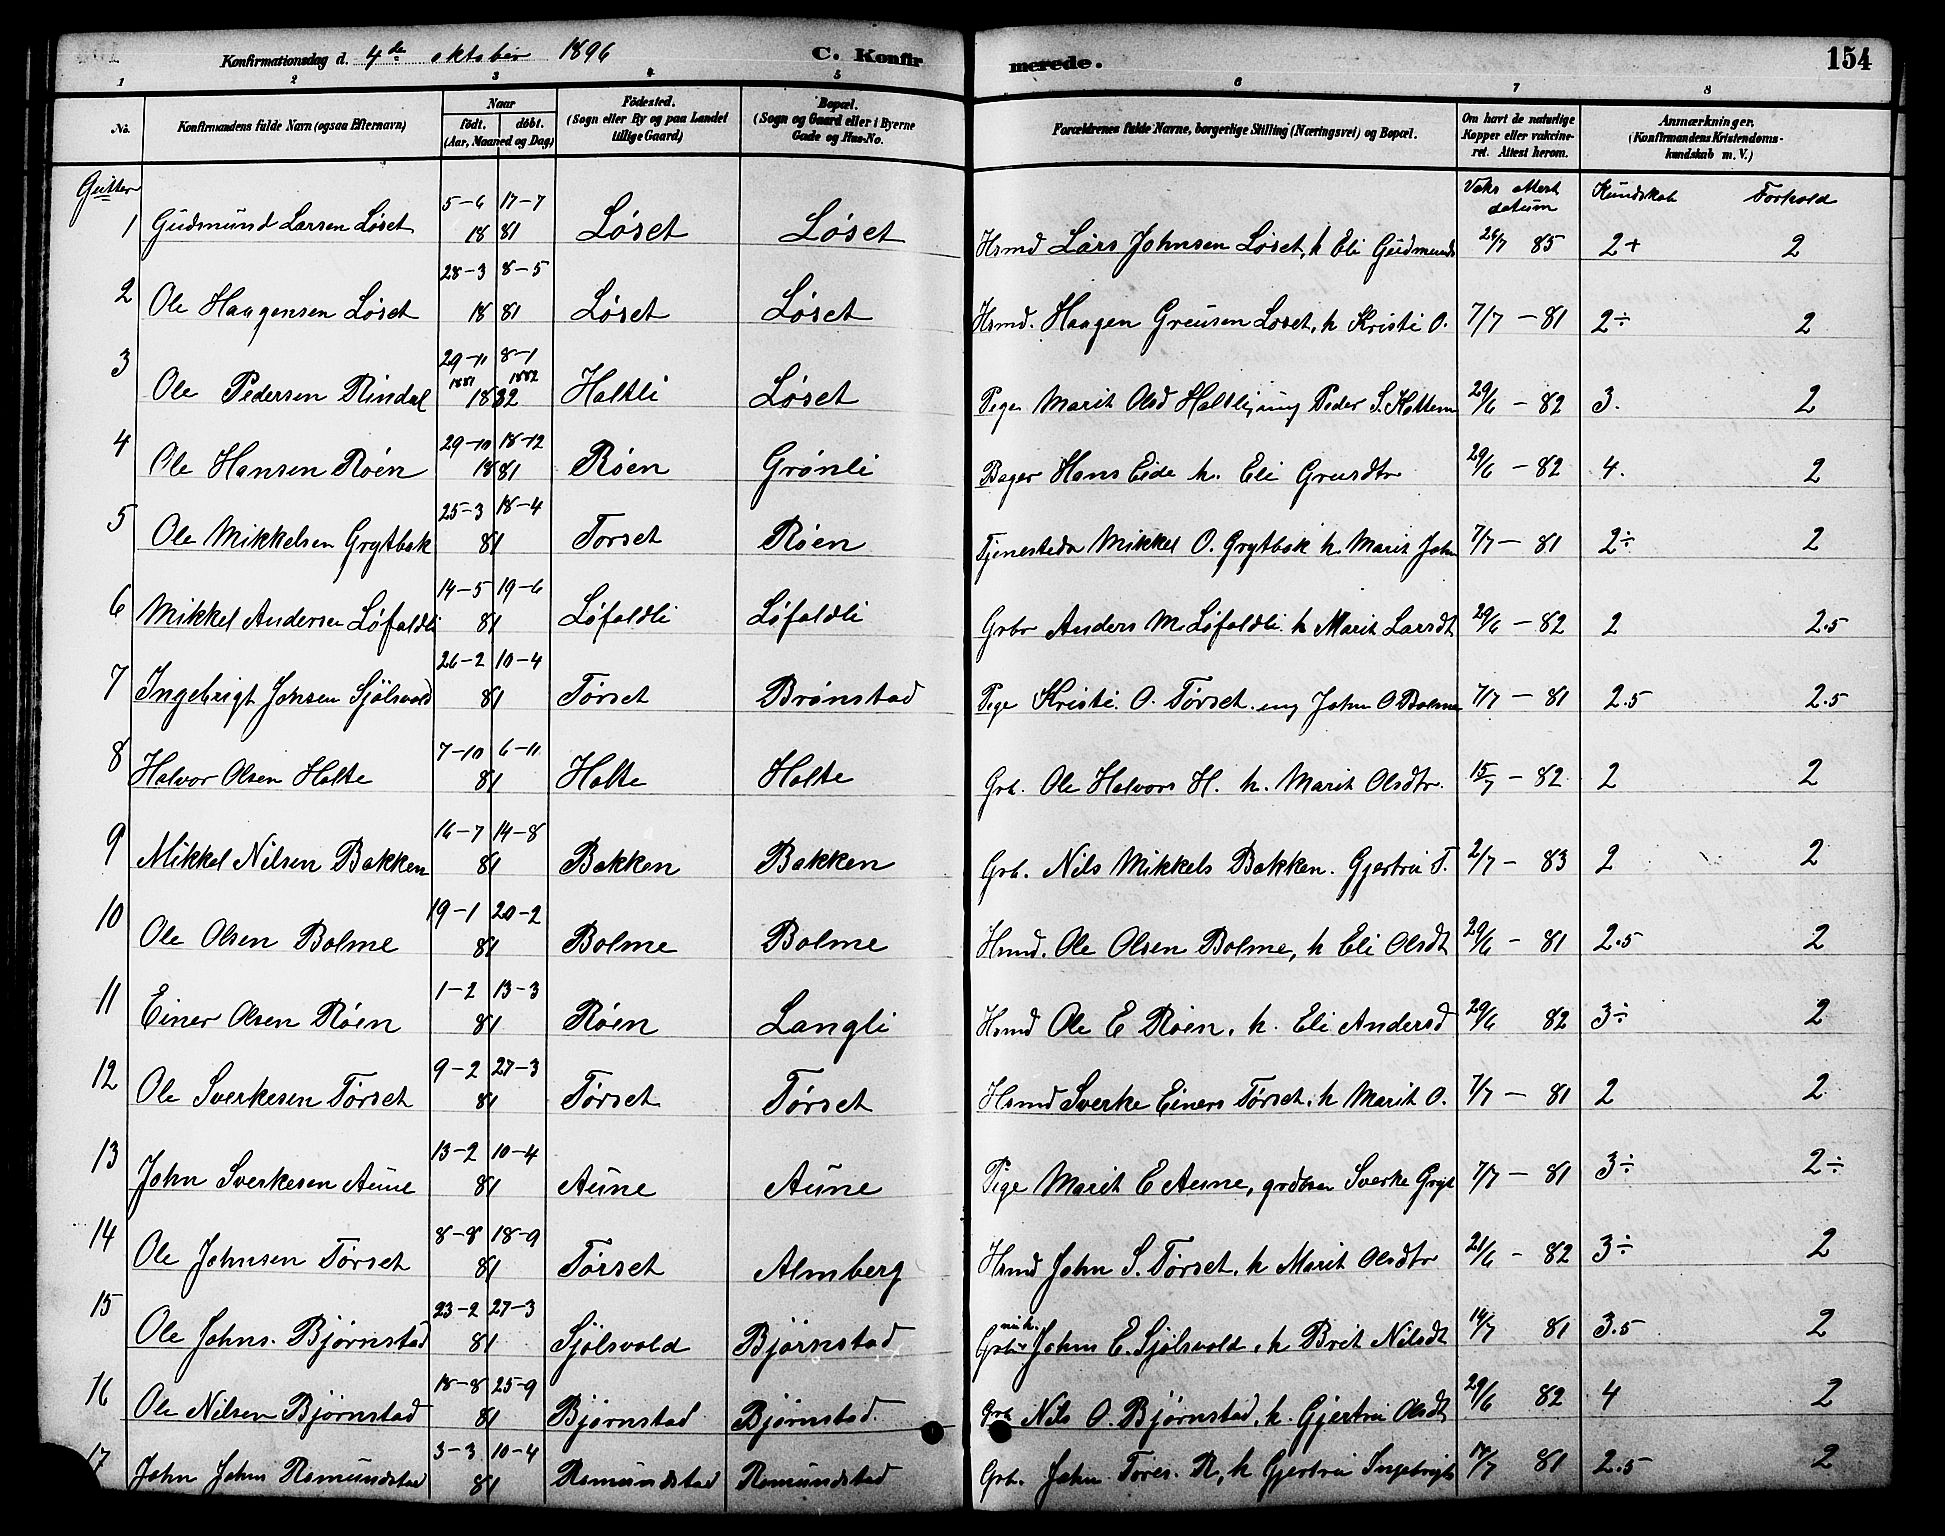 Konfirmationsdag d. 4de oktober 1896 C. Konfirmerede. 154
1 2 3 4 5 6 7 8
No. Konfirmandens fulde Navn (ogsaa Efternavn) Naar födt. döbt. (Aar, Maaned og Dag) Födested. (Sogn eller By og paa Landet tillige Gaard) Bopæl. (Sogn og Gaard eller i Byerne Gade og Hus-No. Forældrenes fulde Navne, borgerlige Stilling (Næringsvei) og Bopæl. Om havt de naturlige Kopper eller vakcineret. Attest herom. Anmærkninger. (Konfirmandens Kristendomskundskab m. V.)
Gutter Vaks attest datum Kundskab Forhold
1 Gudmund Larsen Løset 5-6 17-7 1881 Løset Løset Hsmd Lars Johnsen Løset, h Eli Gudmunds 26/7 85 2+ 2
2 Ole Haagensen Løset 28-3 8-5 1881 Løset Løset Hsmd. Haagen Greusen Løset, h Kristi O. 7/7 - 81 2÷ 2
3 Ole Pedersen Rindal 29-11 1881 8-1 1882 Haltli Løset Pige Marit Olsd Haltli, ung Peder S. Hattem 29/6 - 82 3. 2
4 Ole Hansen Røen 29-10 18-12 1881 Røen Grønli Bager Hans Eide h. Eli Grusdtr 29/6 - 82 4. 2
5 Ole Mikkelsen Grytbak 25-3 18-4 81 Torset Røen Tjenestedr Mikkel O. Grytbak h. Marit John 7/7 - 81 2÷ 2
6 Mikkel Andersen Løfaldli 14-5 19-6 81 Løfaldli Løfaldli Grbr Anders M Løfaldli. h Marit Larsdt 29/6 - 82 2 2.5
7 Ingebrigt Johnsen Sjølsvold 26-2 10-4 81 Tørset Brønstad Pige Kristi O. Tørset. ung John O Bolme 7/7 - 81 2.5 2.5
8 Halvor Olsen Holte 7-10 6-11 81 Holte Holte Grb. Ole Halvors H. h. Marit Olsdtr. 15/7 - 82 2 2
9 Mikkel Nilsen Bakken 16-7 14-8 81 Bakken Bakken Grb. Nils Mikkels Bakken. Gjertru T. 2/7 - 83 2 2
10 Ole Olsen Bolme 19-1 20-2 81 Bolme Bolme Hsmd. Ole Olsen Bolme, h Eli Olsdt 29/6 - 81 2.5 2
11 Einer Olsen Røen 1-2 13-3 81 Røen Langli Hsmd Ole E Røen, h. Eli Andersd 29/6 82 3÷ 2
12 Ole Sverkesen Tørset 9-2 27-3 81 Tørset Tørset Hsmd Sverke Einers Tørset. h Marit O. 7/7 - 81 2 2
13 John Sverkesen Aune 13-2 10-4 81 Aune Aune Pige Marit E Aune, grdbsn Sverke Gryt 7/7 - 81 3÷ 2÷
14 Ole Johnsen Tørset 8-8 18-9 81 Tørset Almberg Hsmd John S. Tørset, h Marit Olsdtr 21/6 - 82 3÷ 2
15 Ole Johns. Bjørnstad 23-2 27-3 81 Sjølsvold Bjørnstad Grbr John E. Sjølsvold, h Brit Nilsdt 14/7 81 3.5 2
16 Ole Nilsen Bjørnstad 18-8 25-9 81 Bjørnstad Bjørnstad. Grb Nils O. Bjørnstad, h. Gjertru Olsdt 29/6 82 4 2
17 John Johns Romundstad 3-3 10-4 81 Romundstad Romundstad Grb. John Tores. R, h Gjertru Ingebrigts 14/7 81 2.5 2